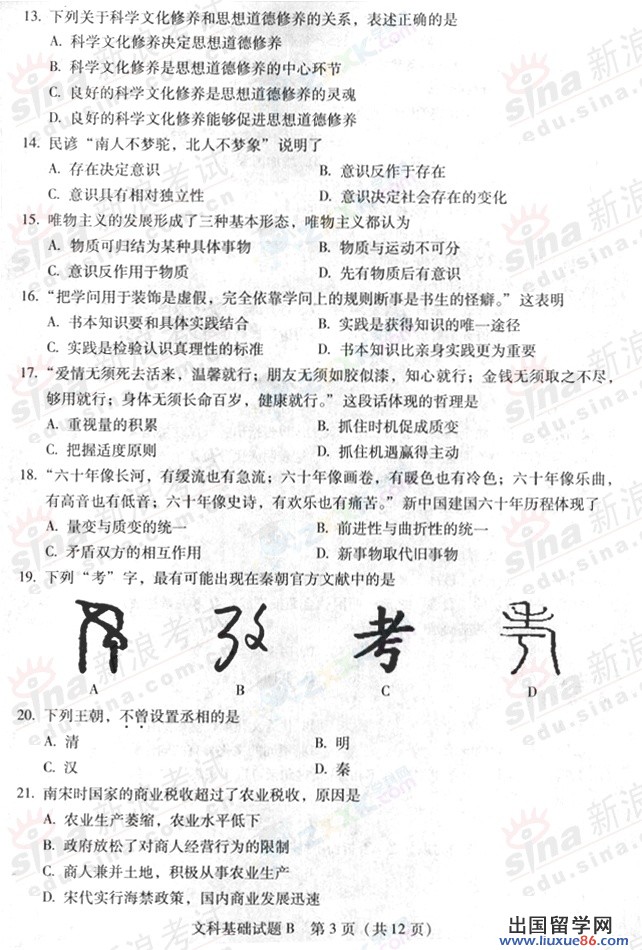 13. 下列关于科学文化修养和思想道德修养的关系，表述正确的是
A. 科学文化修养决定思想道德修养
B. 科学文化修养是思想道德修养的中心环节
C. 良好的科学文化修养是思想道德修养的灵魂
D. 良好的科学文化修养能够促进思想道德修养
14. 民谚“南人不梦驼，北人不梦象”说明了
A. 存在决定意识 B. 意识反作于存在
C. 意识具有相对独立性 D. 意识决定社会存在的变化
15. 唯物主义的发展形成了三种基本形态，唯物主义都认为
A. 物质可归结为某种具体事物 B. 物质与运动不可分
C. 意识反作用于物质 D. 先有物质后有意识
16. “把学问用于装饰是虚假，完全依靠学问上的规则断事是书生的怪癖。”这表明
A. 书本知识要和具体实践结合 B. 实践是获得知识的唯一途径
C. 实践是检验认识真理性的标准 D. 书本知识比亲身实践更为重要
17. “爱情无须死去活来，温馨就行；朋友无须如胶似漆，知心就行；金钱无须取之不尽，
够用就行；身体无须长命百岁，健康就行。”这段话体现的哲理是
A. 重视量的积累 B. 抓住时机促成质变
C. 把握适度原则 D. 抓住机遇赢得主动
18. “六十年像长河，有缓流也有急流；六十年像画卷，有暖色也有冷色；六十年像乐曲，
有高音也有低音；六十年像史诗，有欢乐也有痛苦。”新中国建国六十年历程体现了
A. 量变与质变的统一 B. 前进性与曲折性的统一
C. 矛盾双方的相互作用 D. 新事物取代旧事物
19. 下列“考”字，最有可能出现在秦朝官方文献中的是
考
A B C D
20. 下列王朝，不曾设置丞相的是
A. 清 B. 明
C. 汉 D. 秦
21. 南宋时国家的商业税收超过了农业税收，原因是
A. 农业生产萎缩，农业水平低下
B. 政府放松了对商人经营行为的限制
C. 商人兼并土地，积极从事农业生产
D. 宋代实行海禁政策，国内商业发展迅速
文科基础试题 B 第 3 页（共 12 页）
出国留学网
www.liuxue86.com
sina 新浪考试
edu.sina.com.cn